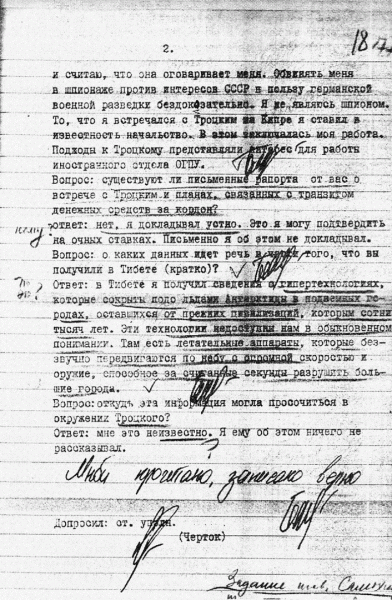 2.
18
и считаю, что она оговаривает меня. Обвинять меня
в шпионаже против интересов СССР в пользу германской
военной разведки бездоказательно. Я не являюсь шпионом.
То, что я встречался с Троцким на Кипре я ставил в
известность начальство. В этом заключалась моя работа.
Подходы к Троцкому представляли интерес для работы
иностранного отдела ОГПУ.
Вопрос: существуют ли письменные рапорта от вас о
встрече с Троцким и планах, связанных с транзитом
денежных средств за кордон?
ответ: нет, я докладывал устно. Это я могу подтвердить
кому?
на очных ставках. Письменно я об этом не докладывал.
Вопрос: о каких данных идет речь в того, что вы
получили в Тибете (кратко)?
Ответ: в Тибете я получил сведения о гипертехнологиях,
которые сокрыты подо льдами Антарктиды в подземных го-
родах, оставшихся от прежних цивилизаций, которым сотни
тысяч лет. Эти технологии недоступны нам в обыкновенном
понимании. Там есть летательные аппараты, которые без-
звучно передвигаются по небу с огромной скоростью и
оружие, способное за считаные секунды разрушить боль-
шие города.
Вопрос:откудъ эта информация могла просочиться в
окружених Троцкого?
Ответ: мне это неизвестно. Я ему об этом ничего не
рассказывал.
?
Мной прочитано, записано верно
Допросил: ст. уполн.
(Черток)
Задание тов.